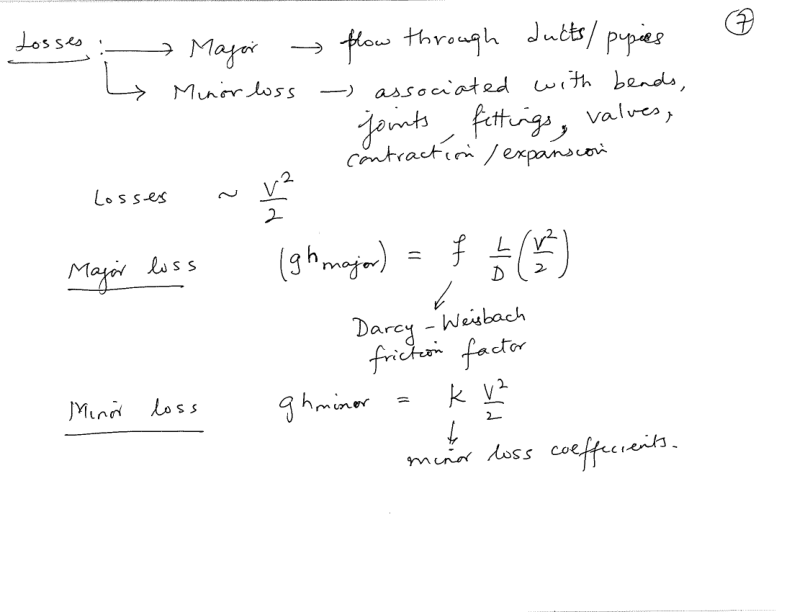 ⑦
Losses : → Major → flow through ducts/pipies
→ Minor loss → associated with bends,
joints, fittings, valves,
contraction/expansion
Losses ~ V²/2
Major loss (gh major) = f L/D (V²/2)
Darcy-Weisbach
friction factor
Minor loss gh minor = k V²/2
minor loss coefficients.